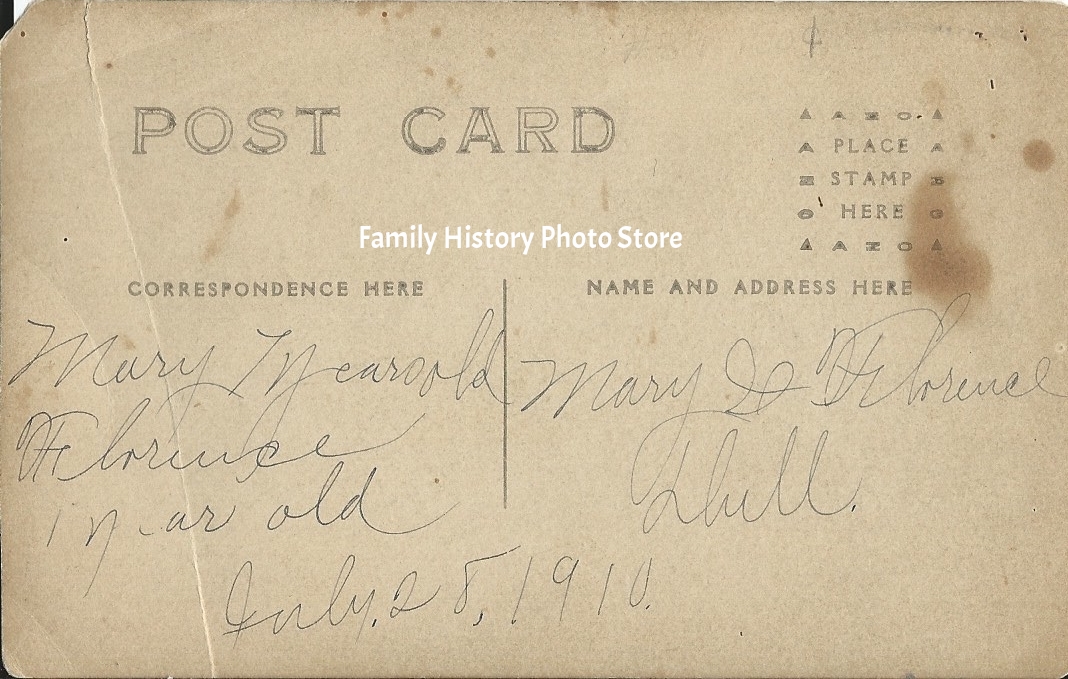 POST CARD
AZO
PLACE
STAMP
HERE
AZO
Family History Photo Store
CORRESPONDENCE HERE
NAME AND ADDRESS HERE
Mary 7 years old
Florence
1 year old
Mary & Florence
July. 28, 1910.